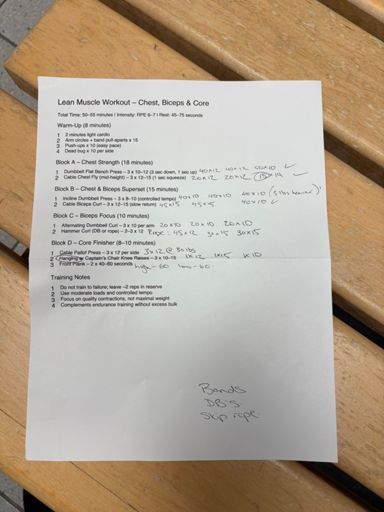 Lean Muscle Workout – Chest, Biceps & Core
Total Time: 50–55 minutes | Intensity: RPE 6–7 | Rest: 45–75 seconds
Warm-Up (8 minutes)
1 2 minutes light cardio
2 Arm circles + band pull-aparts x 15
3 Push-ups x 10 (easy pace)
4 Dead bug x 10 per side
Block A – Chest Strength (18 minutes)
1 Dumbbell Flat Bench Press – 3 x 10–12 (3 sec down, 1 sec up) 40x12 40x12 50x10 ✓
2 Cable Chest Fly (mid-height) – 3 x 12–15 (1 sec squeeze) 20x12 20x12 15x14 ✓
Block B – Chest & Biceps Superset (15 minutes)
1 Incline Dumbbell Press – 3 x 8–10 (controlled tempo) 40x10 40x10 40x10 (5 lbs heavier)
2 Cable Biceps Curl – 3 x 12–15 (slow return) 45x15 45x15 40x10 ✓
Block C – Biceps Focus (10 minutes)
1 Alternating Dumbbell Curl – 3 x 10 per arm 20x10 20x10 20x10
2 Hammer Curl (DB or rope) – 2–3 x 12 Rope: 45x12 30x15 30x15
Block D – Core Finisher (8–10 minutes)
1 Cable Pallof Press – 3 x 12 per side 3x12 @ 30lbs
2 Hanging or Captain's Chair Knee Raises – 3 x 10–15 1x12 1x15 1x10
3 Front Plank – 2 x 40–60 seconds high-60 low-60
Training Notes
1 Do not train to failure; leave ~2 reps in reserve
2 Use moderate loads and controlled tempo
3 Focus on quality contractions, not maximal weight
4 Complements endurance training without excess bulk
Bands
DB's
Skip rope